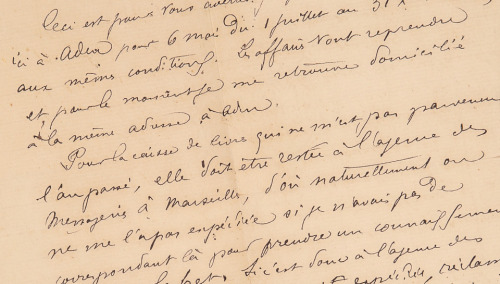 Ceci est pour vous
ici à Aden pour 6 mois du 1 juillet au 31 X
aux mêmes conditions. Les affaires vont reprendre
et pour le moment je me retrouve domicilié
à la même adresse à Aden.
Pour la caisse de livres qui ne m'est pas parvenue
l'an passé, elle doit être restée à l'agence des
Messageries à Marseille, d'où naturellement on
ne me l'a pas expédiée si je n'avais pas de
correspondant là pour prendre un connaissement
fret. Si c'est donc à l'agence des
expédiée,